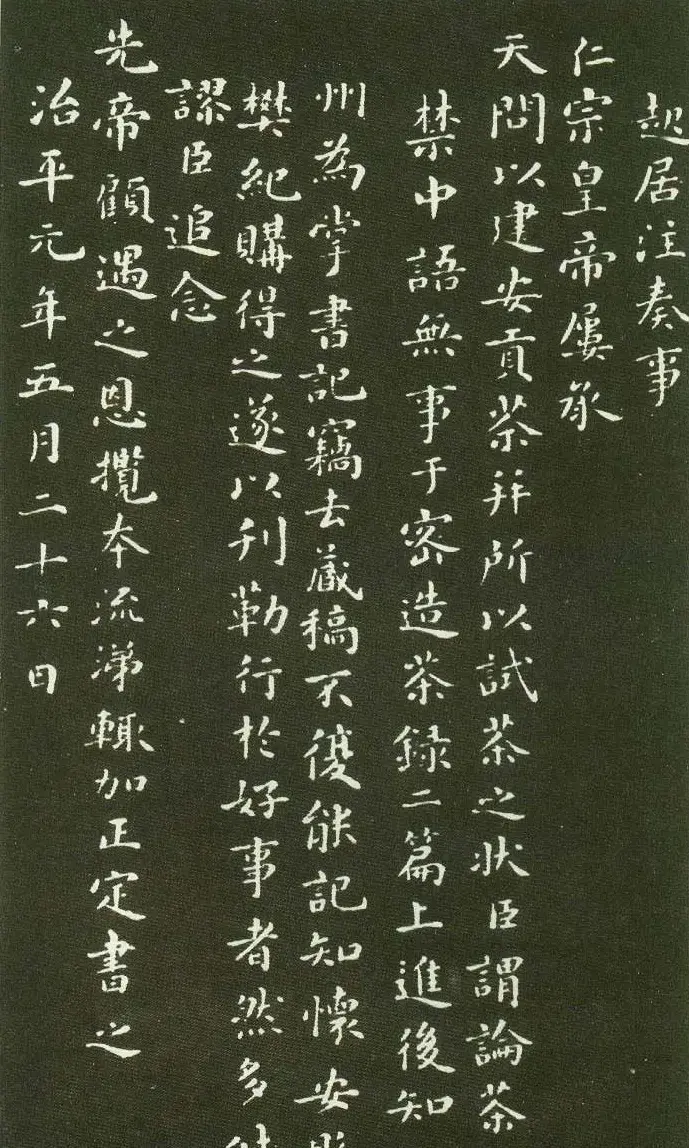 起居注奏事
仁宗皇帝屢承
天問以建安貢茶并所以試茶之狀臣謂論茶
禁中語無事于密造茶錄二篇上進後知
州為掌書記竊去藏稿不復能記知懷安
樊紀購得之遂以刊勒行於好事者然多
謬臣追念
先帝顧遇之恩攬本流涕輒加正定書之
治平元年五月二十六日